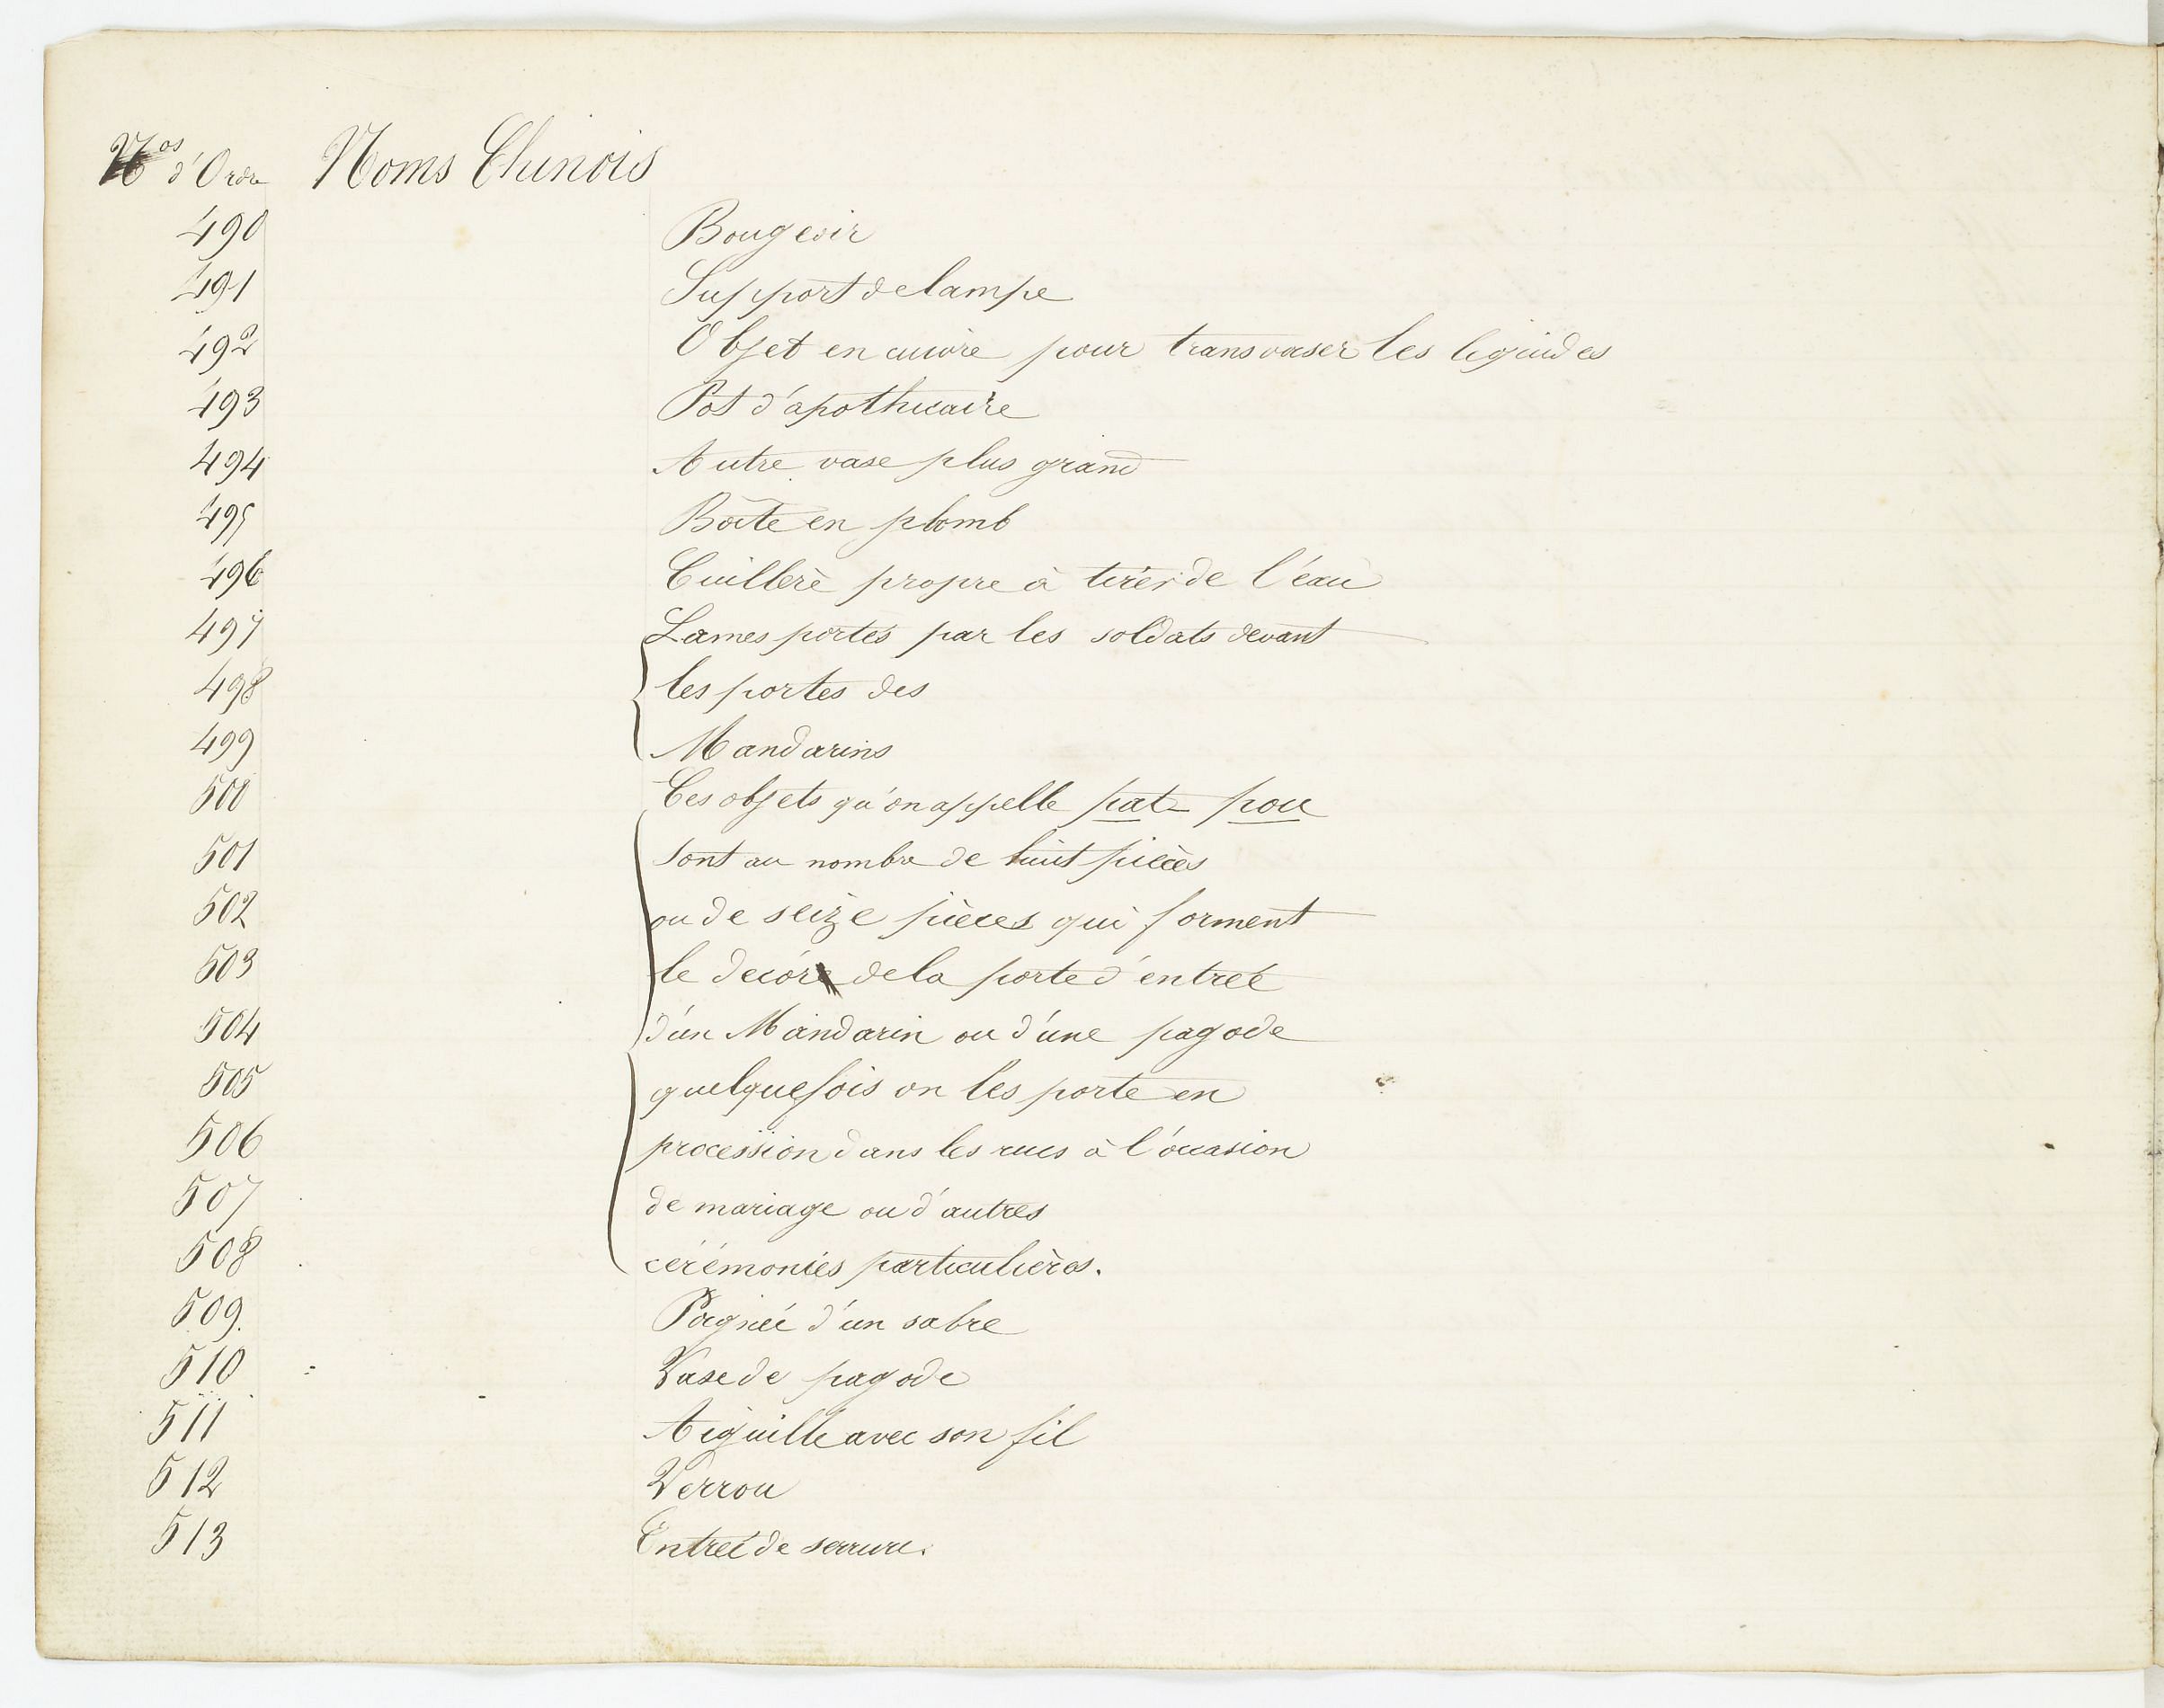 Nos d'Ordre Noms Chinois
490 Bougeoir
491 Support de lampe
492 Objet en cuivre pour transvaser les liquides
493 Pot d'apothicaire
494 Autre vase plus grand
495 Boîte en plomb
496 Cuillère propre à tirer de l'eau
497 Lames portés par les soldats devant
498 les portes des
499 Mandarins
500 Ces objets qu'on appelle pat-pou
501 sont au nombre de huit pièces
502 ou de seize pièces qui forment
503 le decór de la porte d'entreé
504 d'un Mandarin ou d'une pagode
505 quelquefois on les porte en
506 procession dans les rues à l'occasion
507 de mariage ou d'autres
508 cérémonies particulières.
509. Poignée d'un sabre
510 Vase de pagode
511 Aiguille avec son fil
512 Verrou
513 Entreé de serrure.